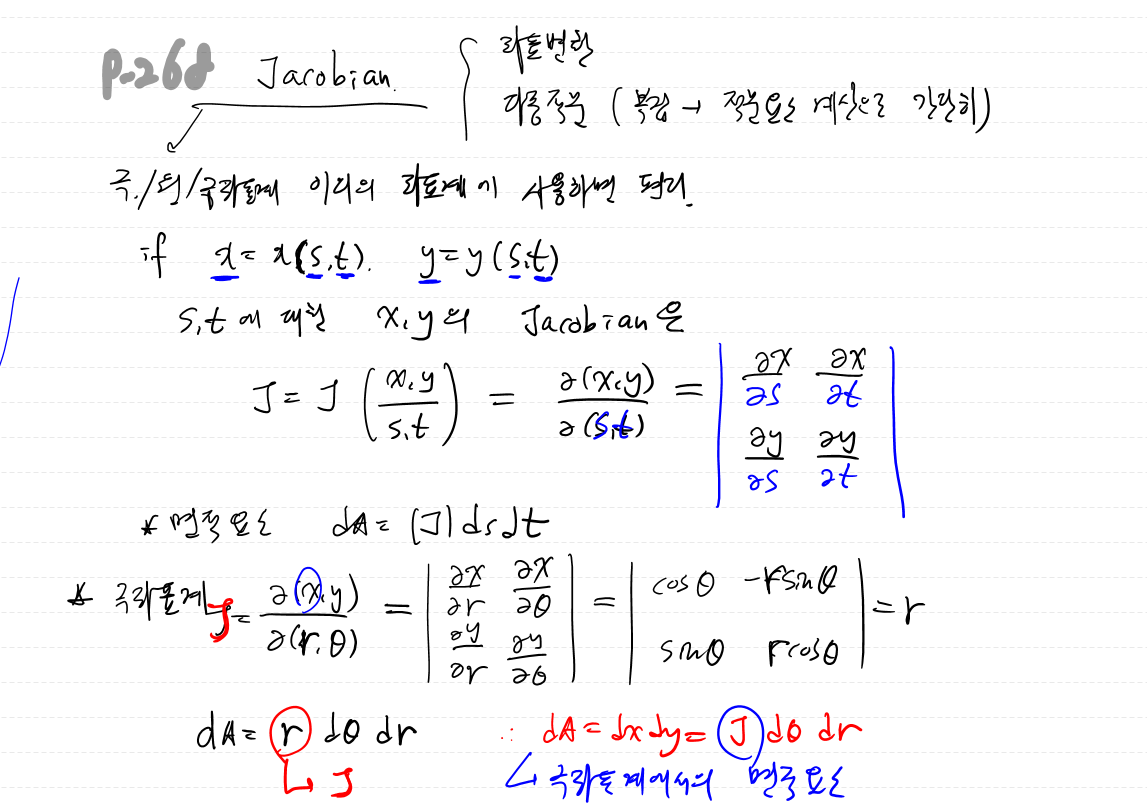 P-268 Jacobian. { 좌표변환
다중적분 (복잡 → 적분요소 계산으로 간단히)
극/원/구좌표계 이외의 좌표계에 사용하면 편리.
if x = x(s,t). y = y(s,t)
s,t에 대한 x,y의 Jacobian은
J = J (x,y / s,t) = ∂(x,y)/∂(s,t) = | ∂x/∂s ∂x/∂t ; ∂y/∂s ∂y/∂t |
* 면적요소 dA = |J| ds dt
* 극좌표계 J = ∂(x,y)/∂(r,θ) = | ∂x/∂r ∂x/∂θ ; ∂y/∂r ∂y/∂θ | = | cosθ -rsinθ ; sinθ rcosθ | = r
dA = r dθ dr ∴ dA = dx dy = J dθ dr
↳ J ↳ 극좌표계에서의 면적요소